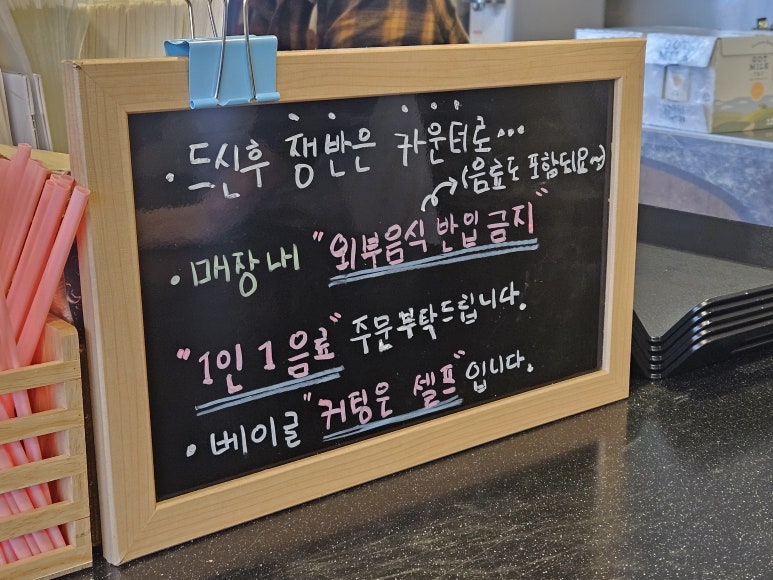 · 드신후 쟁반은 카운터로...
(음료도 포함되요~)
· 매장 내 "외부음식 반입 금지"
"1인 1 음료" 주문부탁드립니다.
· 베이글 "커팅은 셀프"입니다.